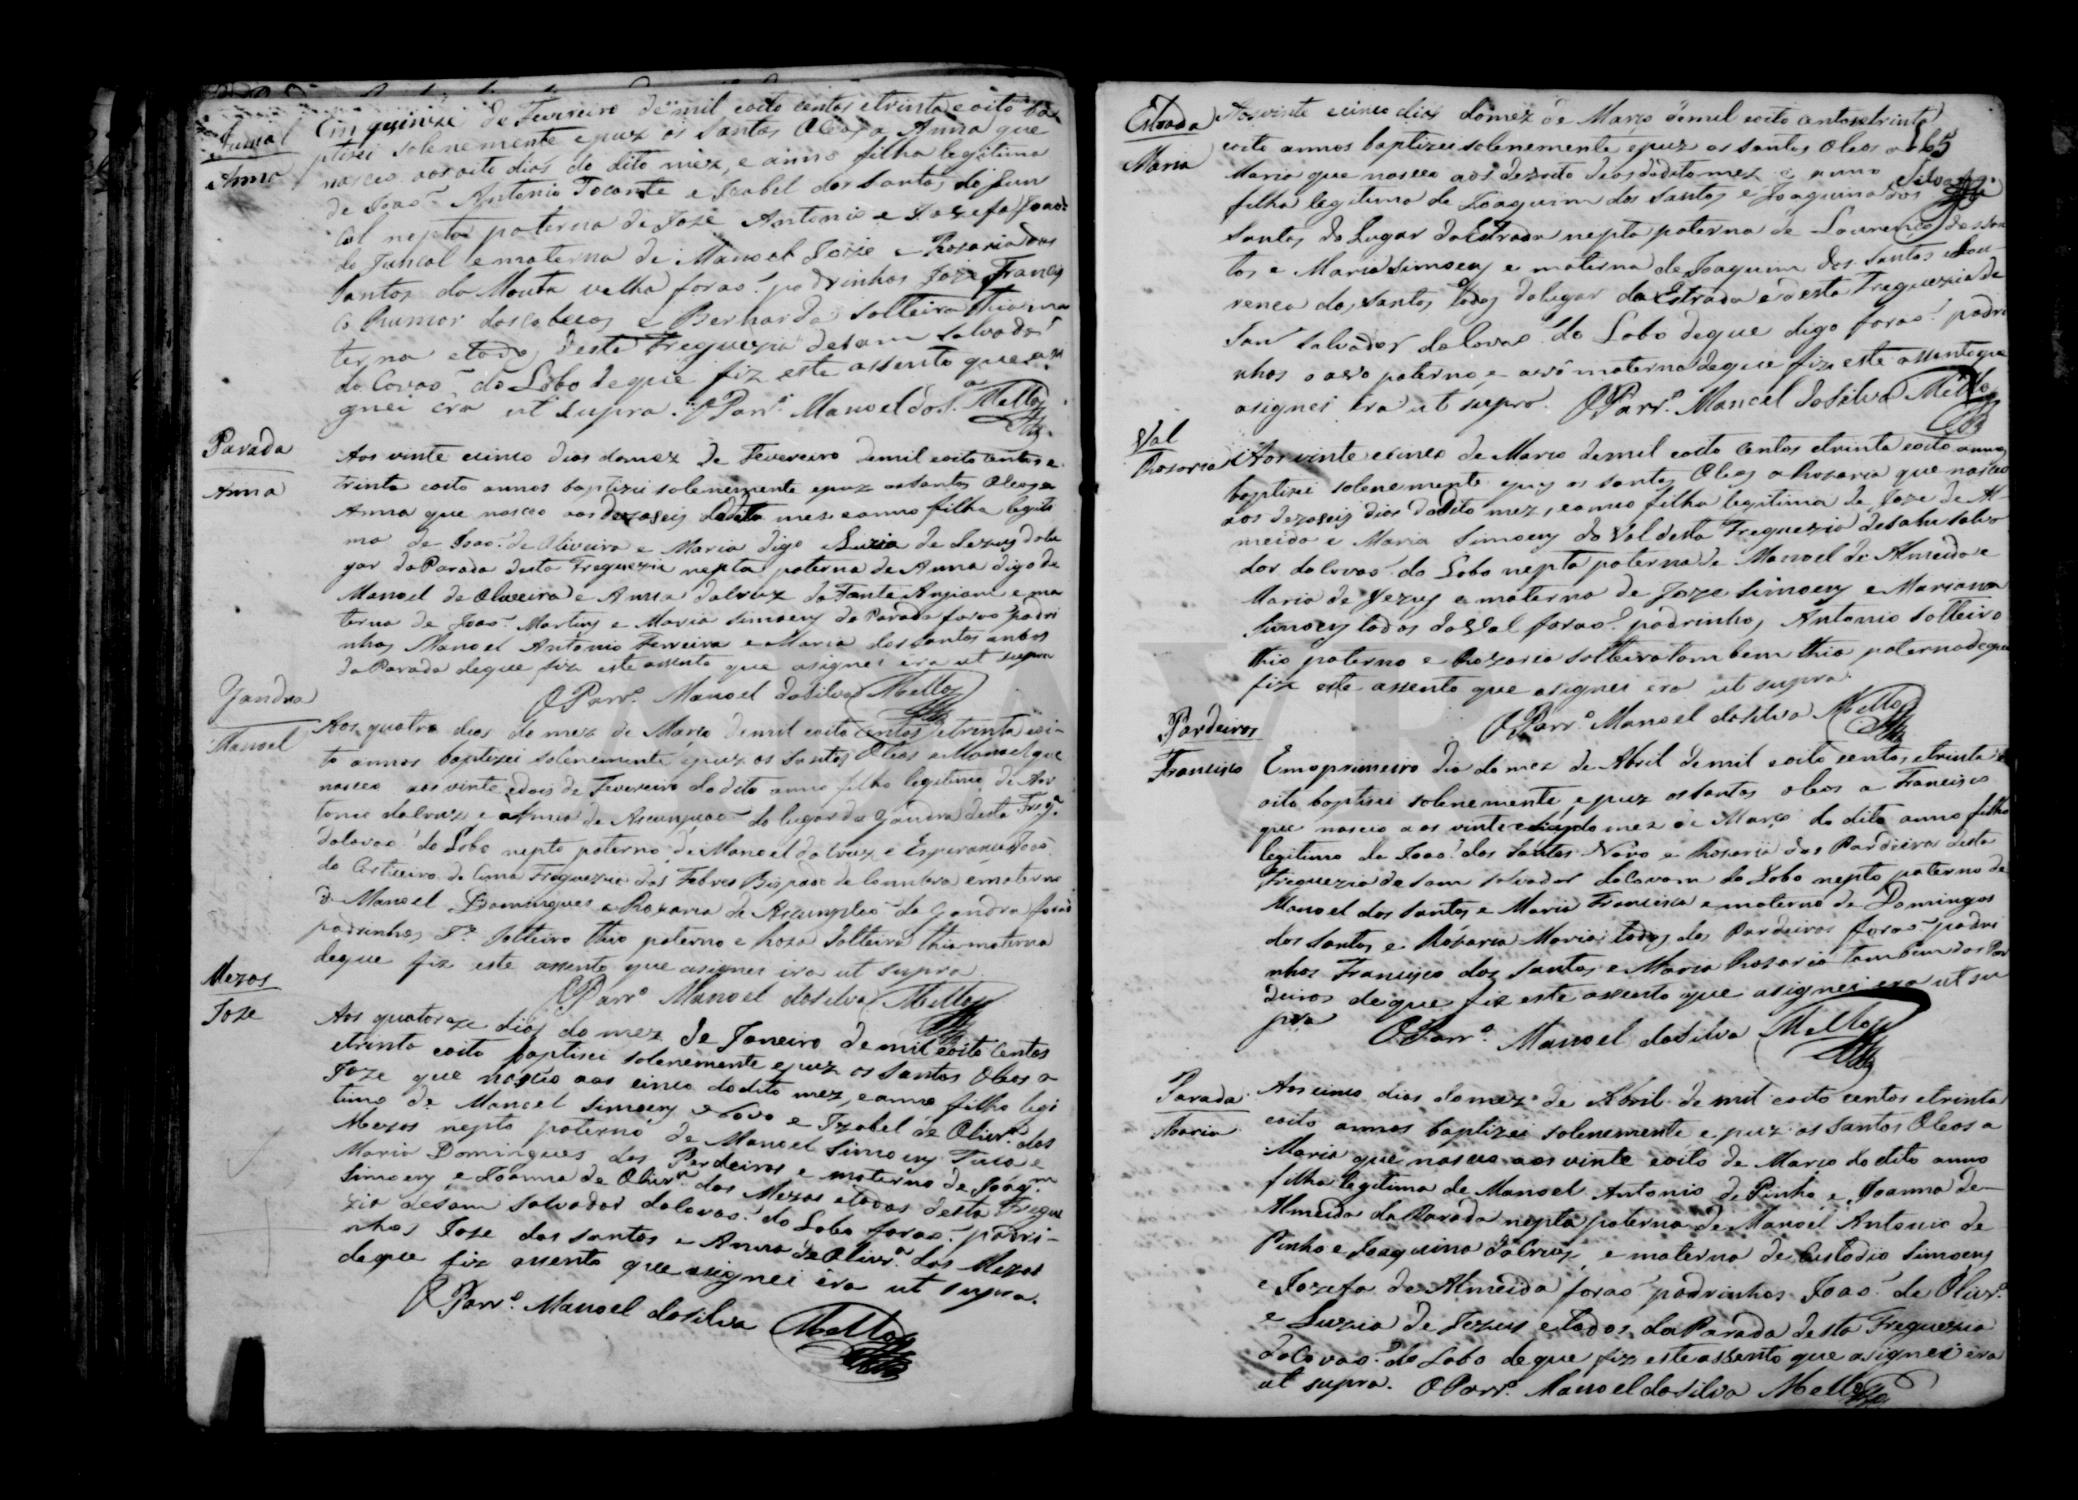 Juncal
Anna
Em quinze de Fevereiro de mil e oito centos e trinta e oito bap
ptizei solenemente e puz os Santos Oleos a Anna que
nasceo aos oito dias do dito mez, e anno filha legitima
de Joaõ Antonio Tocante e Izabel dos Santos do Jun
cal nepta paterna de Joze Antonio e Jozefa Joaõ
do Juncal e materna de Manoel Joze e Rosaria dos
Santos da Mouta velha foraõ padrinhos Joze Francis
co dos cabecos e Bernarda solteira thia ma
terna e todos desta Freguezia de sam Salvador
do Covaõ do Lobo de que fiz este assento que asi
gnei era ut supra. O Parr.º Manoel da S.ª Mello
Parada
Anna
Aos vinte e cinco dias do mez de Fevereiro de mil e oito centos e
trinta e oito annos baptizei solenemente e puz os santos Oleos a
Anna que nasceo aos dezaseis do dito mez e anno filha legiti
ma de Joaõ de Oliveira e Maria digo e Luzia de Jezus do lu
gar da Parada desta Freguezia nepta paterna de Anna digo de
Manoel de Oliveira e Anna da Cruz da Fonte Angiam e ma
terna de Joaõ Martins e Maria Simoens da Parada foraõ padri
nhos Manoel Antonio Ferreira e Maria dos Santos ambos
da Parada de que fiz este assento que asignei era ut supra
O Parr.º Manoel da Silva Mello
Gandra
Manoel
Aos quatro dias do mez de Março de mil e oito centos e trinta e oi-
to annos baptizei solenemente e puz os Santos Oleos a Manoel que
nasceo aos vinte e dois de Fevereiro do dito anno filho legitimo de An
tonio da Cruz e Anna de Ascunpçaõ do lugar da Gandra desta Freg.ª
do Covaõ do Lobo nepto paterno de Manoel da Cruz e Esperanca Joaõ
do Corticeiro de Cima Freguezia das Febres Bispado de Coimbra e materno
de Manoel Domingues e Rosaria de Ascumpcaõ da Gandra foraõ
padrinhos solteiro thio paterno e Roza solteira thia materna
de que fiz este assento que asignei era ut supra
O Parr.º Manoel da Silva Mello
Mezas
Joze
Aos quatorze dias do mez de Janeiro de mil e oito centos
e trinta e oito baptizei solenemente e puz os Santos Oleos a
Joze que nasceo aos cinco do dito mez, e anno filho legi
timo de Manoel Simoens Novo e Izabel de Olivr.ª das
Mezas nepto paterno de Manoel Simoens e
Maria Domingues dos Pardeiros e materno de Joaq.m
Simoens e Joanna de Olivr.ª das Mezas e todos desta Fregue
zia de sam Salvador do Covaõ do Lobo foraõ padri-
nhos Joze dos Santos e Anna de Olivr.ª das Mezas
de que fiz assento que asignei era ut supra.
O Parr.º Manoel da Silva Mello
Estrada
Maria
Aos vinte e cinco dias do mez de Março de mil e oito centos e trinta
e oito annos baptizei solenemente e puz os santos Oleos a
65
Silva
Maria que nasceo aos dezoito dias do dito mez e anno
filha legitima de Joaquim dos Santos e Joaquina dos
Santos do Lugar da Estrada nepta paterna de Lourenço dos San
tos e Maria Simoens e materna de Joaquim dos Santos e Lou-
renca dos Santos todos do lugar da Estrada e desta Freguezia de
San Salvador do Covaõ do Lobo de que digo foraõ padri
nhos o avo paterno e avó materna de que fiz este assento que
asignei era ut supra. O Parr.º Manoel da Silva Mello
Val
Rosaria
Aos vinte e cinco de Marco de mil e oito centos e trinta e oito annos
baptizei solenemente e puz os santos Oleos a Rosaria que nasceo
aos dezaseis dias do dito mez, e anno filha legitima de Joze de Al-
meida e Maria Simoens do Val desta Freguezia de sam salva
dor do Covaõ do Lobo nepta paterna de Manoel de Almeida e
Maria de Jezus e materna de Joze Simoens e Marianna
Simoens todos do Val foraõ padrinhos Antonio solteiro
thio paterno e Rozaria solteira tambem thia paterna de que
fiz este assento que asignei era ut supra.
O Parr.º Manoel da Silva Mello
Pardeiros
Francisco
Em o primeiro dia do mez de Abril de mil e oito centos e trinta e
oito baptizei solenemente, e puz os santos oleos a Francisco
que nasceo aos vinte e cinco do mez de Março do dito anno filho
legitimo de Joaõ dos Santos Novo e Rosaria dos Pardeiros desta
Freguezia de sam salvador do Covam do Lobo nepto paterno de
Manoel dos Santos e Maria Francisca e materno de Domingos
dos Santos e Rosaria Maria todos dos Pardeiros foraõ padri
nhos Francisco dos Santos e Maria Rosaria tambem dos Par
deiros de que fiz este assento que asignei era ut su
pra
O Parr.º Manoel da Silva Mello
Parada
Maria
Aos cinco dias do mez de Abril de mil e oito centos e trinta
e oito annos baptizei solenemente e puz os Santos Oleos a
Maria que nasceo aos vinte e oito de Marco do dito anno
filha legitima de Manoel Antonio de Pinho e Joanna de
Almeida da Parada nepta paterna de Manoel Antonio de
Pinho e Joaquina da Cruz, e materna de Custodio Simoens
e Jozefa de Almeida foraõ padrinhos Joaõ de Olivr.ª
e Luzia de Jezus e todos da Parada desta Freguezia
do Covaõ do Lobo de que fiz este assento que asignei era
ut supra. O Parr.º Manoel da Silva Mello